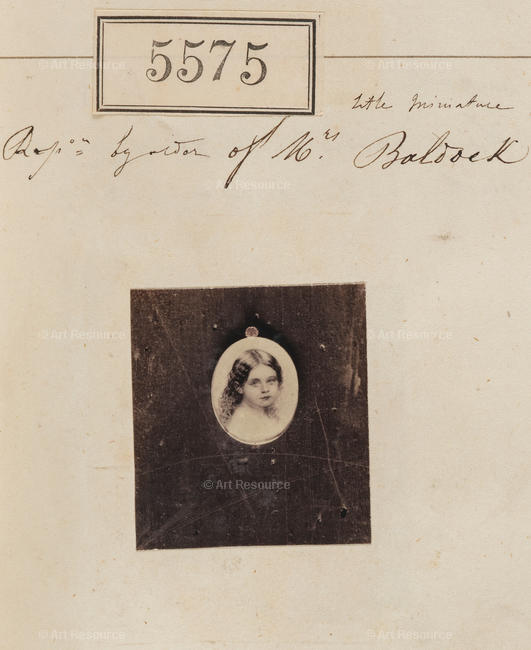 5575
little miniature
Rep:ⁿ by order of Mʳˢ Baldock
© Art Resource
© Art Resource
© Art Resource
© Art Resource
© Art Resource
© Art Resource
© Art Resource
© Art Resource
© Art Resource
© Art Resource